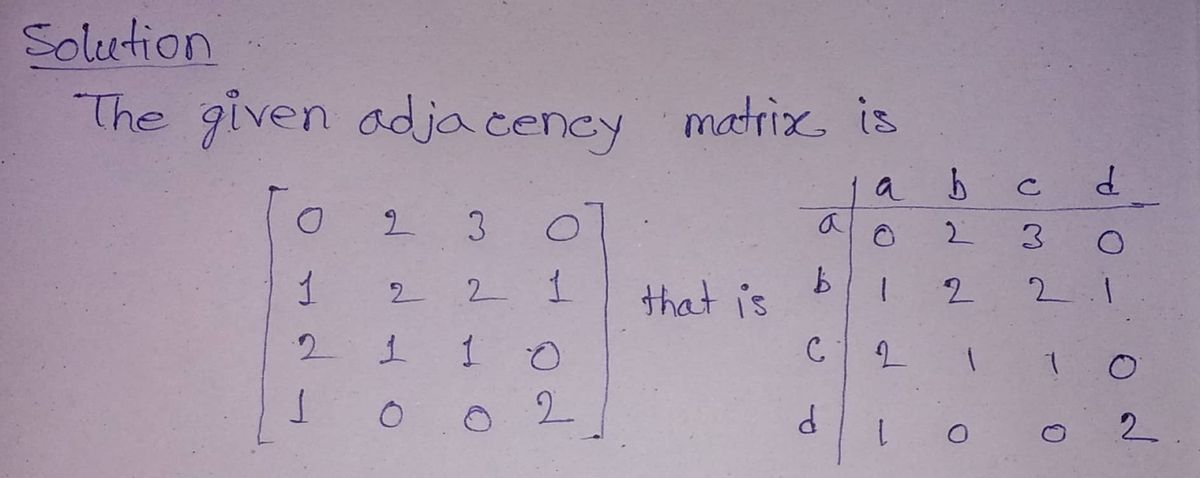 Solution
The given adjacency matrix is
a b c d
0 2 3 0 a 0 2 3 0
1 2 2 1 that is b 1 2 2 1
2 1 1 0 c 2 1 1 0
1 0 0 2 d 1 0 0 2